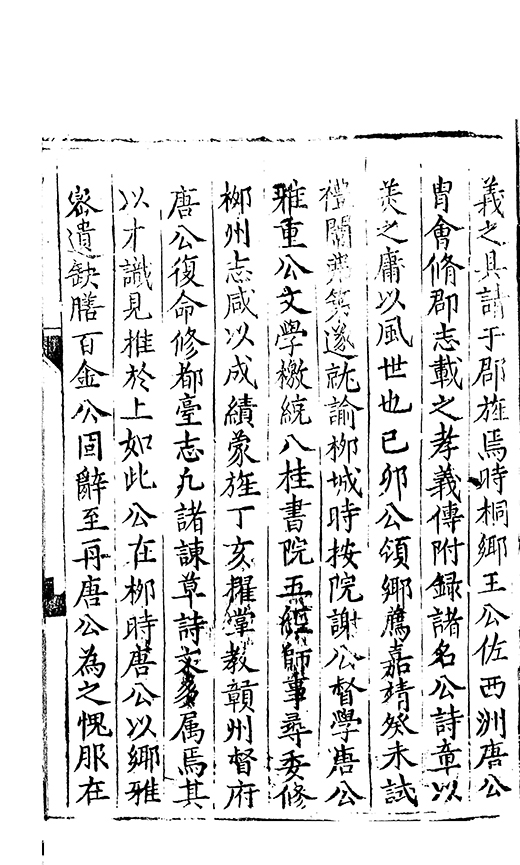 義之具請于郡旌焉時桐鄉王公佐西洲唐公
胄會脩郡志載之孝義傳附錄諸名公詩章以
羙之庸以風世也已卯公領鄉薦嘉靖癸未試
禮闈弗第遂就諭栁城時按院謝公督學唐公
雅重公文學檄統八桂書院五經師事尋委修
栁州志咸以成績蒙旌丁亥擢掌教贛州督府
唐公復命修都臺志凢諸諫草詩文多属焉其
以才識見推於上如此公在栁時唐公以鄉雅
宻遺缺膳百金公固辭至再唐公為之愧服在